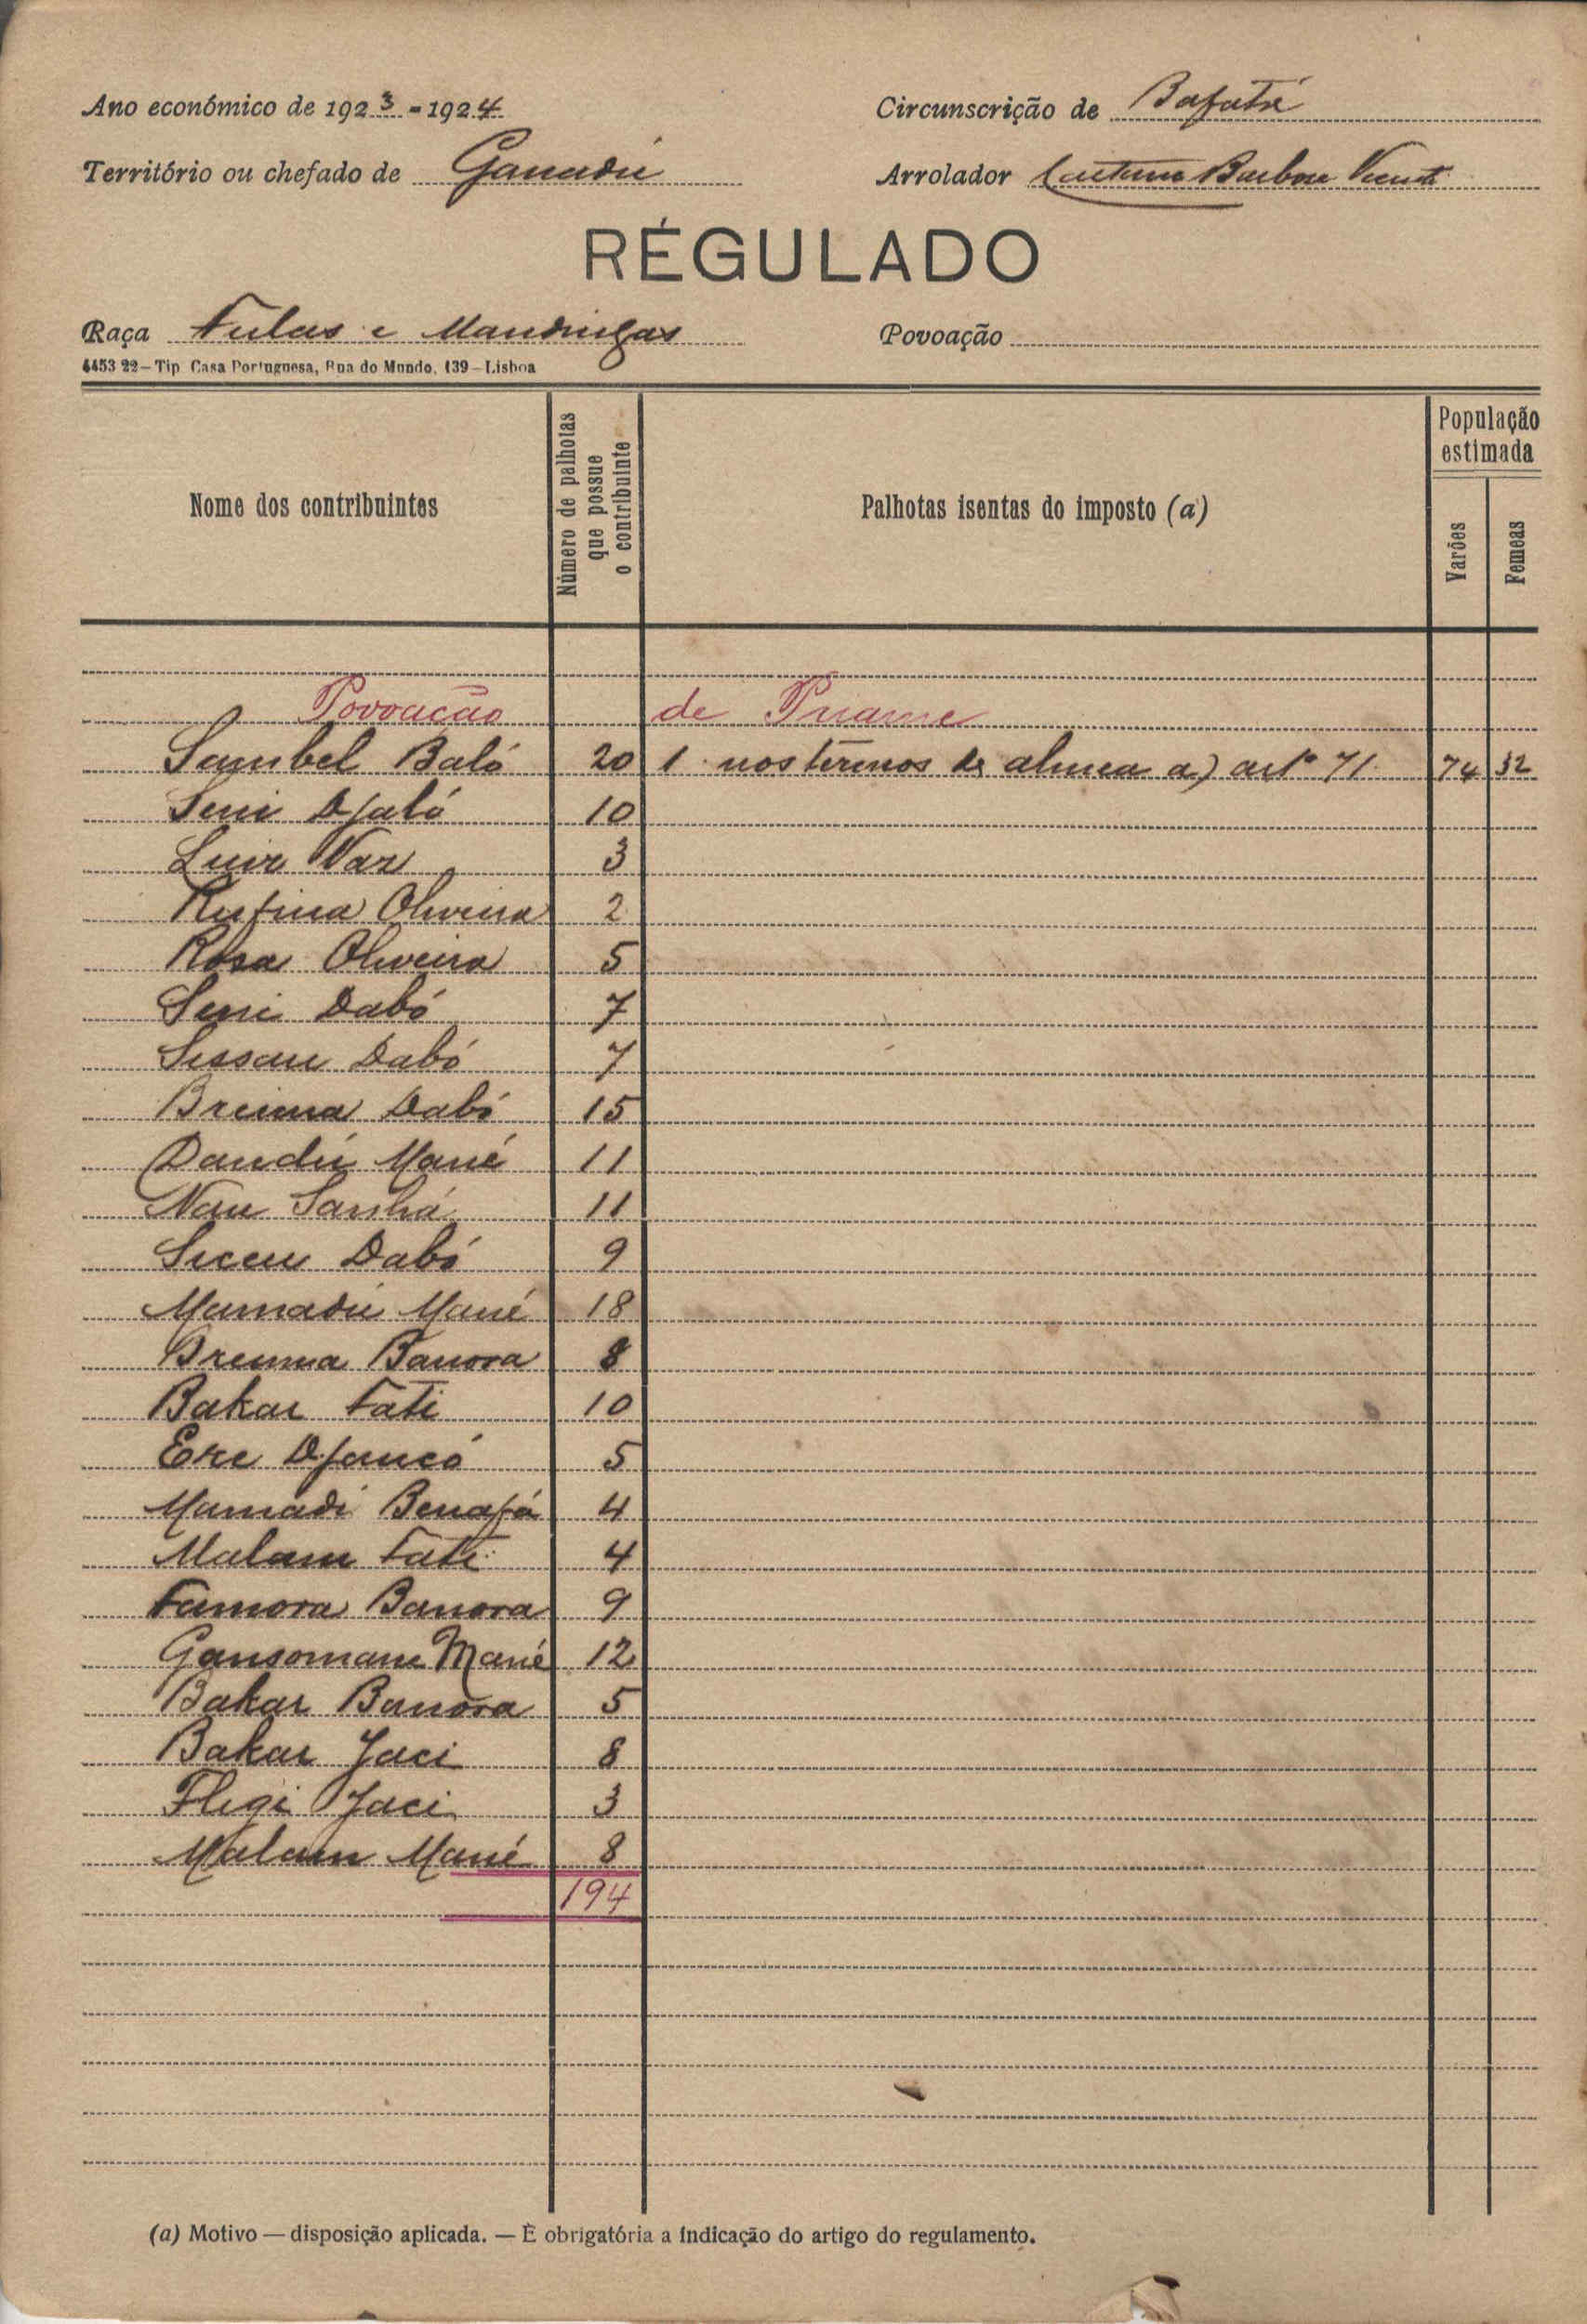 Ano económico de 1923 - 1924 Circunscrição de Bafatá
Território ou chefado de Ganadú Arrolador Caetano Barbosa
RÉGULADO
Raça Fulas e Mandingas Povoação
4453 22 – Tip Casa Portuguesa, Rua do Mundo, 139 – Lisboa
Nome dos contribuintes Número de palhotas que possue o contribuinte Palhotas isentas do imposto (a) População estimada Varões Femeas
Povoação de Priame
Sambel Baló 20 1 nos têrmos da alinea a) artº 71 74 32
Seni Djaló 10
Luiz Vaz 3
Rufina Oliveira 2
Rosa Oliveira 5
Seni Dabó 7
Sissau Dabó 7
Breima Dabó 15
Dandú Mané 11
Nau Sanhá 11
Dabó 9
Mamadú Mané 18
Breima Banora 8
Bakar Fati 10
Djancó 5
Mamadi 4
Malam Fati 4
Famora Banora 9
Gansomane Mané 12
Bakar Banora 5
Bakar Jaci 8
Jaci 3
Malam Mané 8
194
(a) Motivo — disposição aplicada. — É obrigatória a indicação do artigo do regulamento.